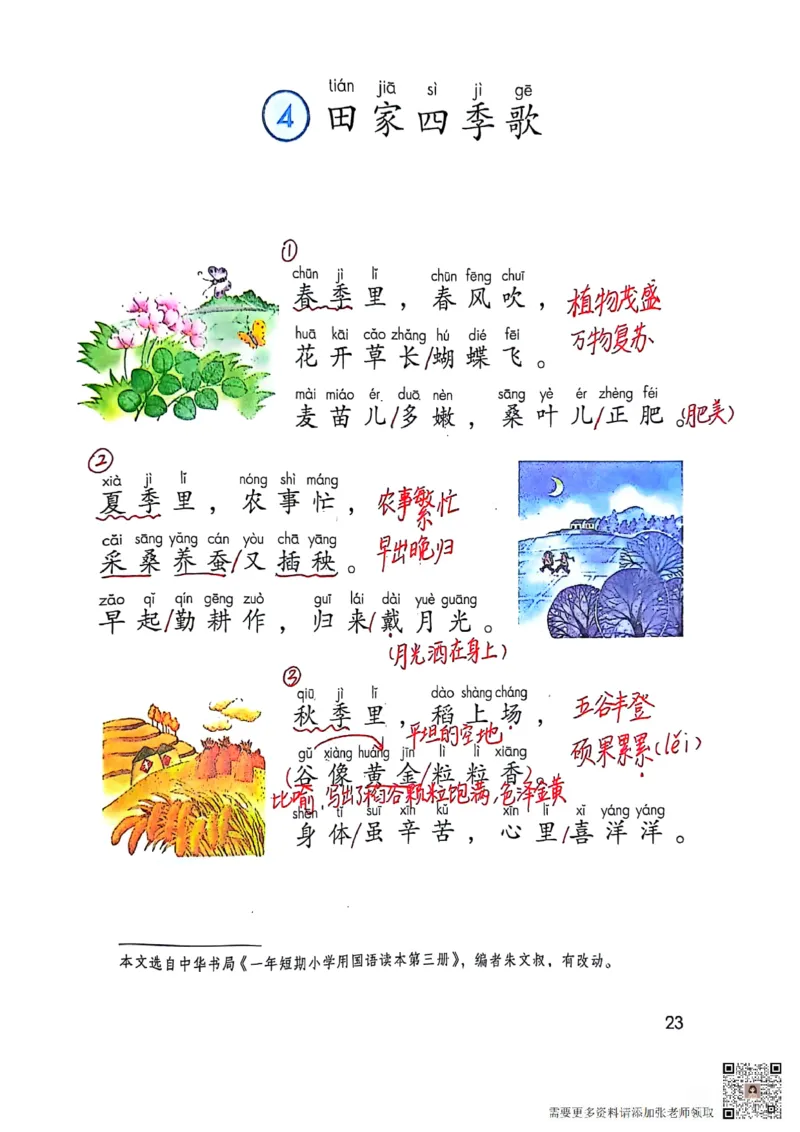 tián jiā sì jì gē
4 田家四季歌
①
chūn jì lǐ chūn fēng chuī
春季里，春风吹，
植物茂盛
huā kāi cǎo zhǎng hú dié fēi
花开草长/蝴蝶飞。
万物复苏
mài miáo ér duō nèn sāng yè ér zhèng féi
麦苗儿/多嫩，桑叶儿/正肥。(肥美)
②
xià jì lǐ nóng shì máng
夏季里，农事忙，
农事繁忙
cǎi sāng yǎng cán yòu chā yāng
采桑养蚕/又插秧。
早出晚归
zǎo qǐ qín gēng zuò guī lái dài yuè guāng
早起/勤耕作，归来/戴月光。
(月光洒在身上)
③
qiū jì lǐ dào shàng cháng
秋季里，稻上场，
五谷丰登
平坦的空地
硕果累累(léi)
gǔ xiàng huáng jīn lì lì xiāng
(谷像黄金/粒粒香)。
比喻，写出了稻谷颗粒饱满，色泽金黄
shēn tǐ suī xīn kǔ xīn lǐ xǐ yáng yáng
身体/虽辛苦，心里/喜洋洋。
本文选自中华书局《一年短期小学用国语读本第三册》，编者朱文叔，有改动。
23
需要更多资料请添加张老师领取